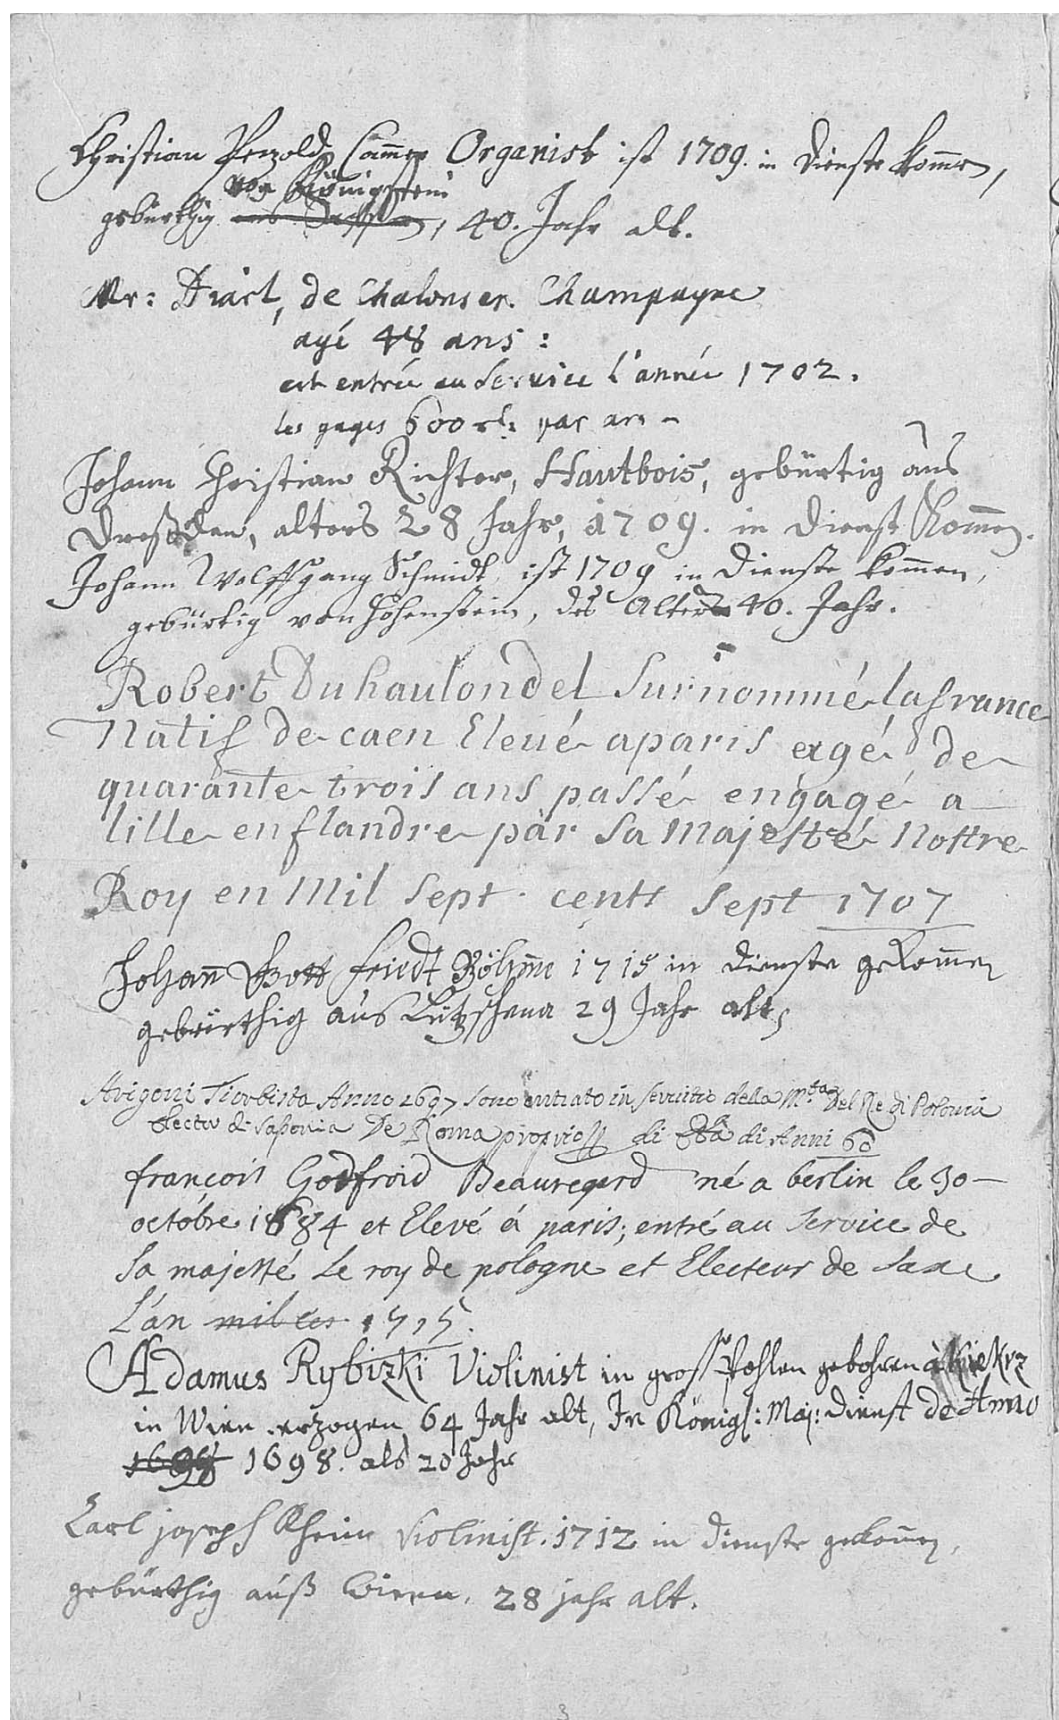 Christian Pezold, Cammer Organist ist 1709. in Dienste komen,
von Königstein
gebürthig aus, 40. Jahr alt.
Mr: de Chalons en Champagne
agé 48 ans :
est entrée au Service l'année 1702.
les gages 600 rl: par an -
Johann Christian Richter, Hautbois, gebürtig aus
Dreßden, alters 28 Jahr, 1709. in Dienst Komen.
Johann Wolffgang Schmidt, ist 1709 in Dienste komen,
gebürtig von Hohenstein, des Alters 40. Jahr.
Robert Duhaulondel Surnommé lafrance
Natif de caen Eleué aparis agé de
quarante trois ans passé engagé a
lille en flandre par Sa Majesté Nottre
Roy en Mil Sept cents Sept 1707
Johann Gott friedt Böhme 1715 in Dienste gekomen
gebürthig aus Lützschena 29 Jahr alt,
Arigoni Tiorbista Anno 1697 sono entrato in servitio della M.tà Del Re di Polonia
Elector di Sassonia De Roma di Età di Anni 60
françois Godfroid Beauregard né a berlin le 30
octobre 1684 et Elevé á paris; entré au Service de
Sa majesté Le roy de pologne et Electeur de Saxe
L'an mil 1715.
Adamus Rybizki Violinist in gross Pohlen gebohren à Kiekrz
in Wien erzogen 64 Jahr alt, In Königl: Maj: Dienst de Anno
1698. als 20 Jahr
Carl joseph Rhein Violinist. 1712 in Dienste gekomen,
gebürthig auß Wien, 28 jahr alt.